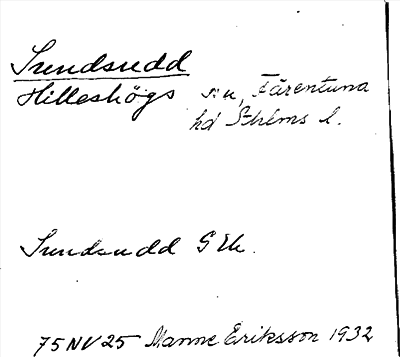 Sundsudd
Hilleshögs sn, Färentuna
hd Sthlms l.
Sundsudd GEk.
75NV25 Manne Eriksson 1932